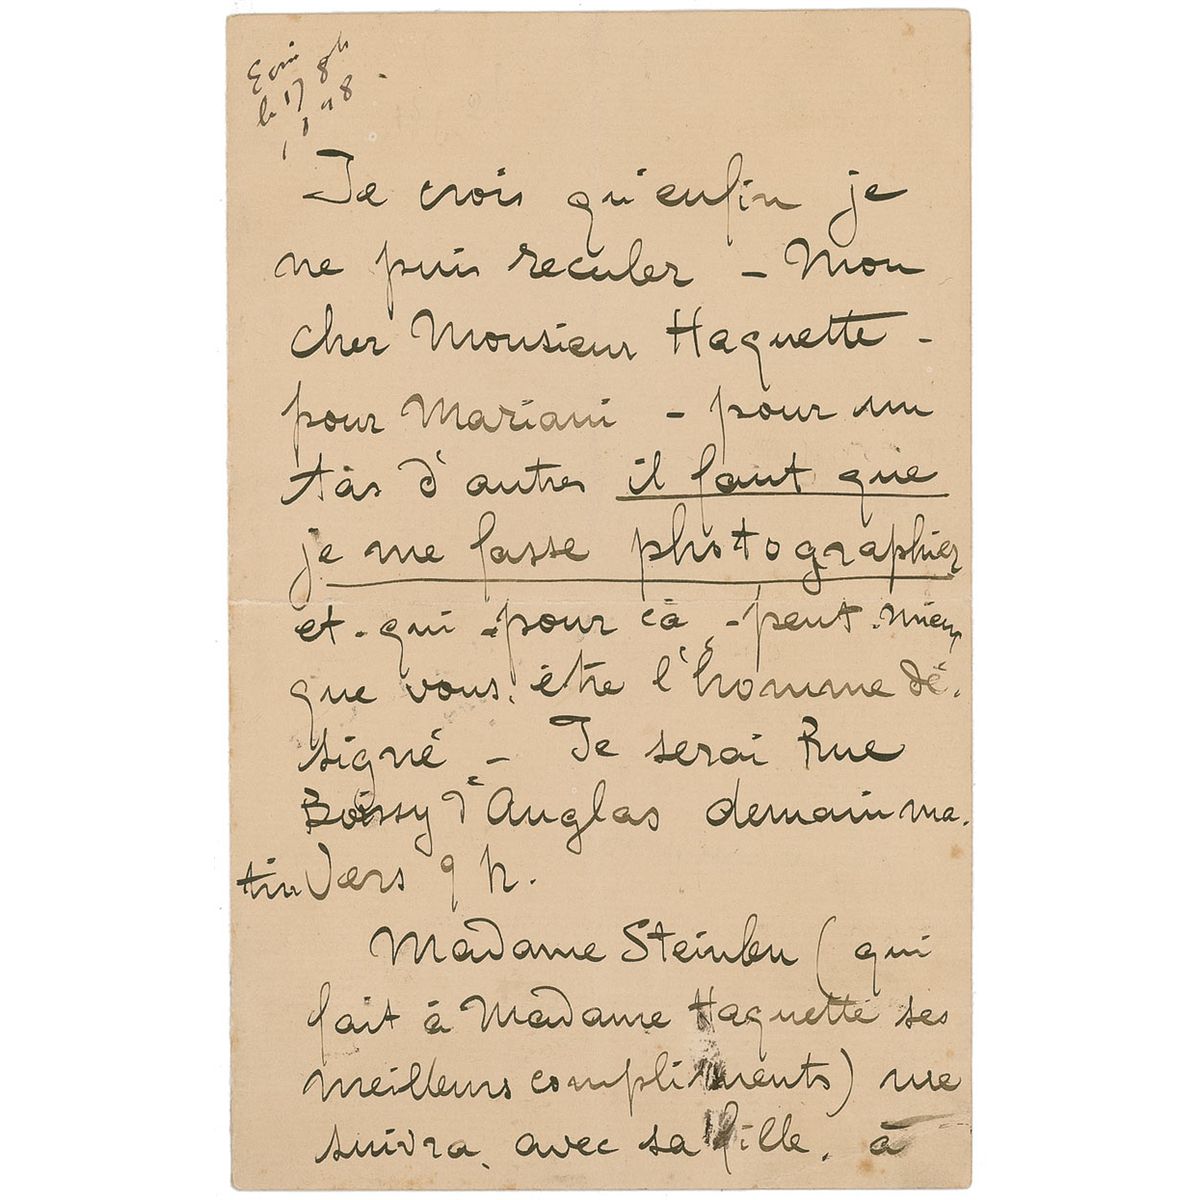 Ecrit
le 17 8bre
Je crois qu'enfin je
ne puis reculer - Mon
cher Monsieur Haquette -
pour Mariani - pour un
tas d'autres il faut que
je me fasse photographier
et - qui - pour ça - peut - mieux
que vous, être l'homme dé-
signé - Je serai Rue
Boissy d'Anglas demain ma-
tin vers 9 h.
Madame Steinlen (qui
fait à Madame Haquette ses
meilleurs compliments) me
suivra, avec sa fille, à